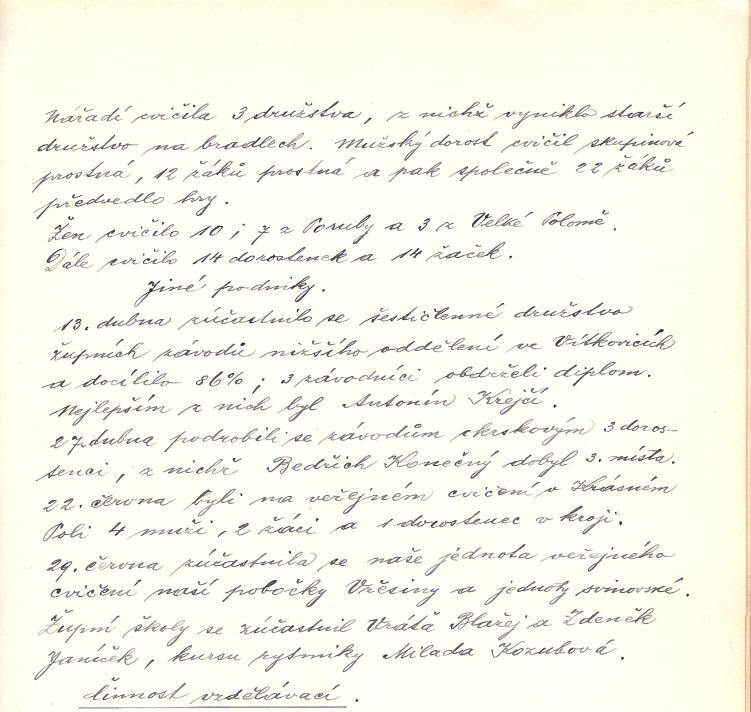 Nářadí cvičila 3 družstva, z nichž vyniklo starší
družstvo na bradlech. Mužský dorost cvičil skupinová
prostná, 12 žáků prostná a pak společně 22 žáků
předvedlo hry.
Žen cvičilo 10; 7 z Poruby a 3 z Velké Polomě.
Dále cvičilo 14 dorostenek a 14 žaček.
Jiné podniky.
13. dubna zúčastnilo se šestičlenné družstvo
župních závodů nižšího oddělení ve Vítkovicích
a docílilo 86%; 3 závodníci obdrželi diplom.
Nejlepším z nich byl Antonín Krejčí.
27. dubna podrobili se závodům okrskovým 3 doros-
tenci, z nichž Bedřich Konečný dobyl 3. místa.
22. června byli na veřejném cvičení v Krásném
Poli 4 muži, 2 žáci a 1 dorostenec v kroji.
29. června zúčastnila se naše jednota veřejného
cvičení naší pobočky Vřesiny a jednoty svinovské.
Župní školy se zúčastnil Vráťa Blažej a Zdeněk
Janíček, kursu rytmiky Milada Kozubová.
Činnost vzdělávací.